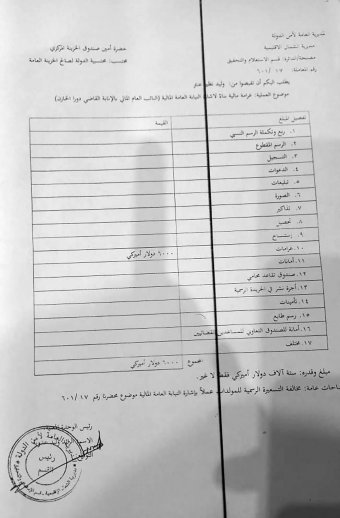 مديرية العامة لأمن الدولة
مديرية الشمال الاقليمية
مصلحة/دائرة: قسم الاستعلام والتحقيق
رقم المعاملة: ٦٠١/١٧
حضرة أمين صندوق الخزينة المركزي
محتسب: محتسبية الدولة لصالح الخزينة العامة
يطلب اليكم أن تقبضوا من: وليد
موضوع العملية: غرامة مالية بناءً لاشارة النيابة العامة المالية (النائب العام المالي بالإنابة القاضي دورا الخازن)
تفصيل المبلغ القيمة
١. ربع وتكملة الرسم النسبي
٢. الرسم المقطوع
٣. التسجيل
٤. الدعوات
٥. تبليغات
٦. الصورة
٧. تذاكير
٨. تحصيل
٩. إستنساخ
١٠. غرامات ٦٠٠٠ دولار أميركي
١١. أمانات
١٢. صندوق تقاعد محامي
١٣. أجرة نشر في الجريدة الرسمية
١٤. تأمينات
١٥. رسم طابع
١٦. أمانة للصندوق التعاوني للمساعدين القضائيين
١٧. مختلف
المجموع ٦٠٠٠ دولار أميركي
مبلغ وقدره: ستة آلاف دولار أميركي فقط لا غير.
احات عامة: مخالفة التسعيرة الرسمية للمولدات عملاً بإشارة النيابة العامة المالية موضوع محضرنا رقم ٦٠١/١٧
رئيس الوحدة
الاسم
رئيس
القسم